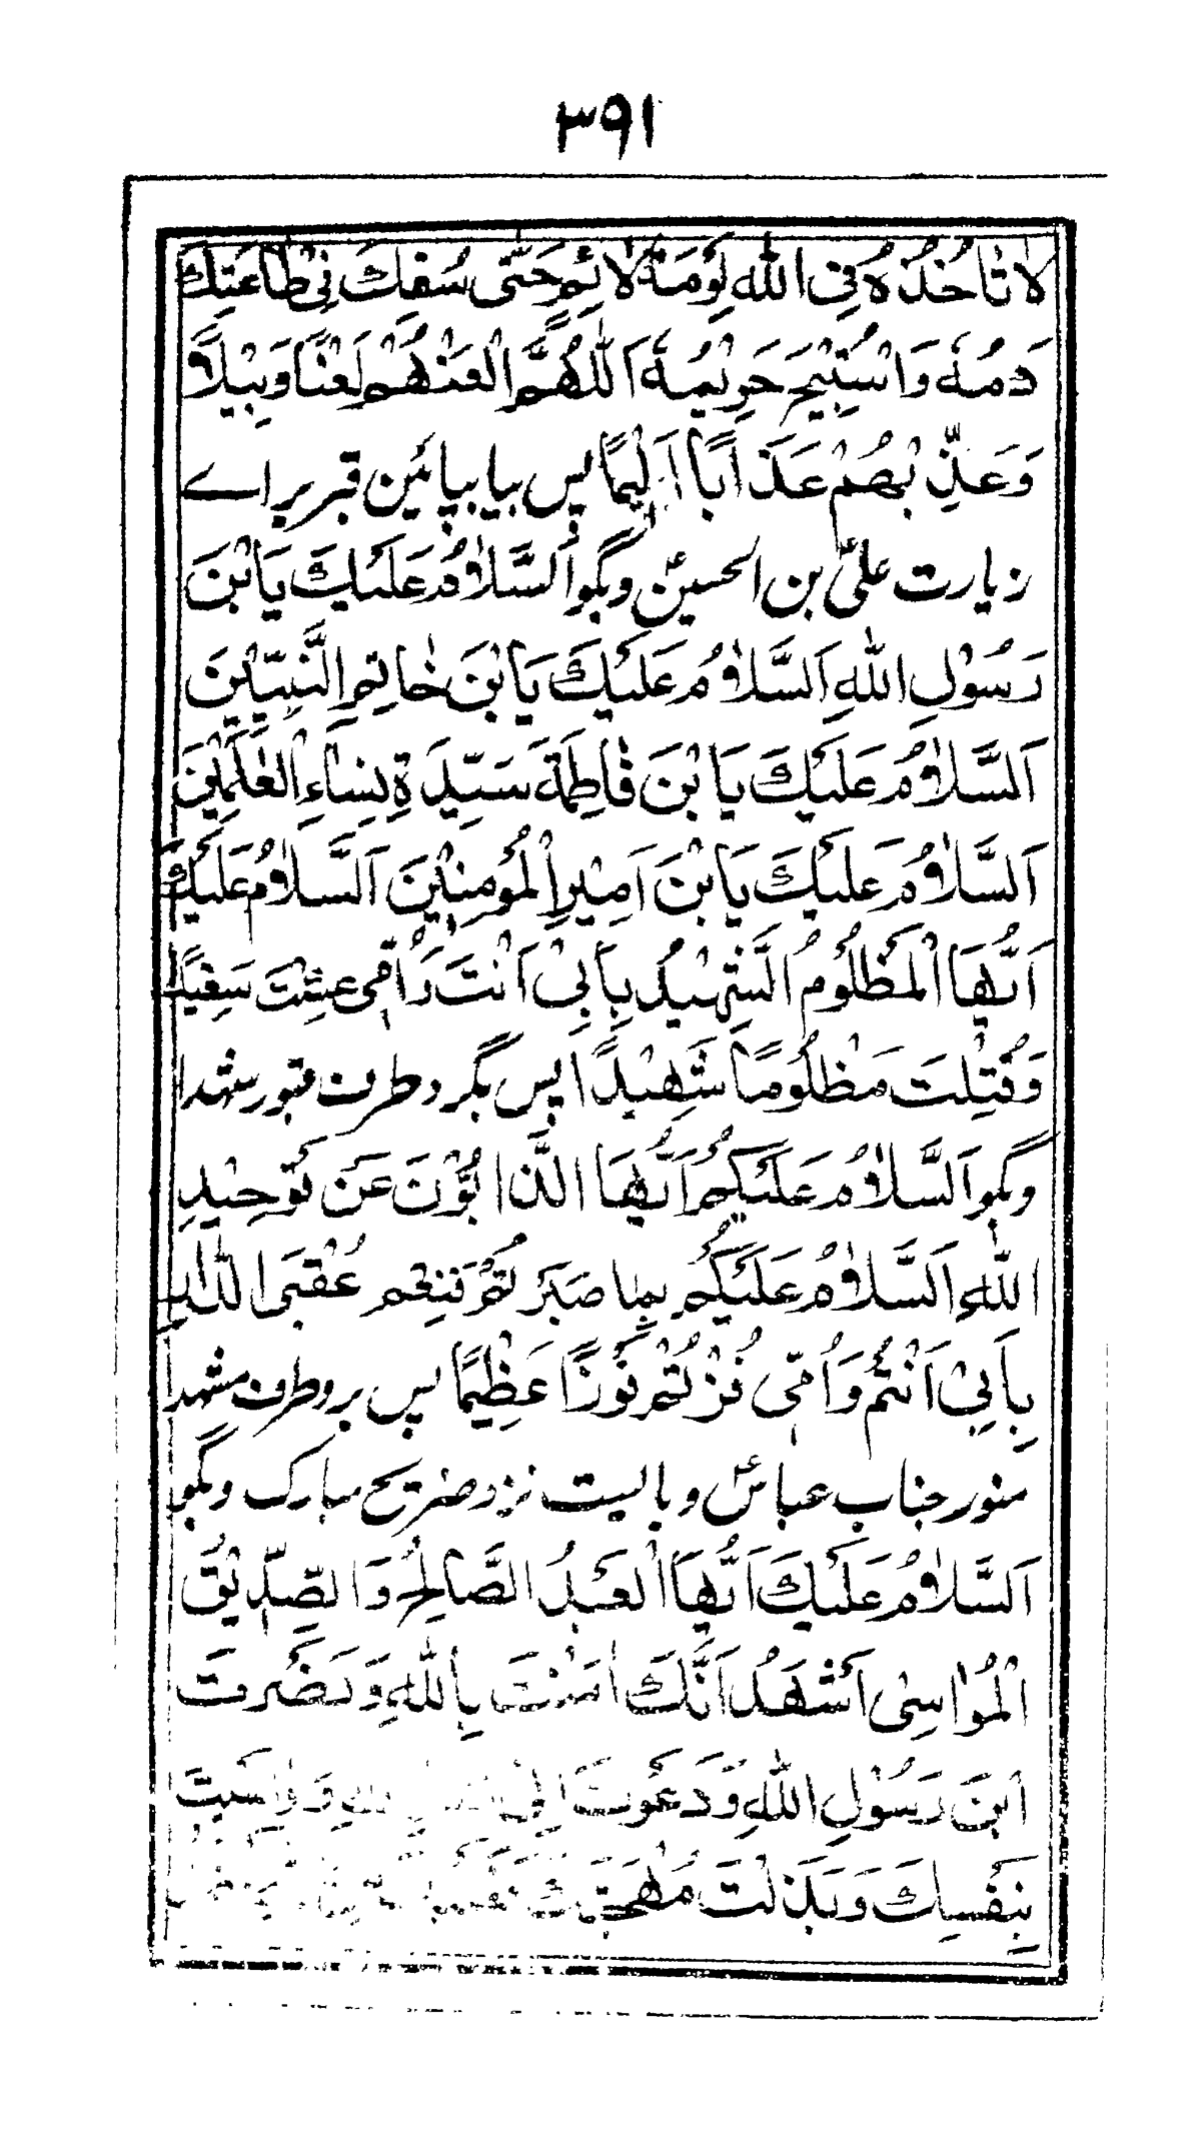 ۳۹۱
لَا تَأْخُذُهُ فِى اللّٰهِ لَوْمَةُ لَائِمٍ حَتّٰى سُفِكَ فِىْ طَاعَتِكَ
دَمُهٗ وَاسْتُبِيْحَ حَرِيْمُهٗ اَللّٰهُمَّ الْعَنْهُمْ لَعْنًا وَبِيْلًا
وَعَذِّبْهُمْ عَذَابًا اَلِيْمًا پس بیا بپائین قبر براے
زیارت علیؑ بن الحسینؑ وبگو اَلسَّلَامُ عَلَيْكَ يَابْنَ
رَسُوْلِ اللّٰهِ اَلسَّلَامُ عَلَيْكَ يَابْنَ خَاتِمِ النَّبِيّيْنَ
اَلسَّلَامُ عَلَيْكَ يَابْنَ فَاطِمَةَ سَيِّدَةِ نِسَاءِ الْعٰلَمِيْنَ
اَلسَّلَامُ عَلَيْكَ يَابْنَ اَمِيْرِ الْمُؤْمِنِيْنَ اَلسَّلَامُ عَلَيْكَ
اَيُّهَا الْمَظْلُوْمُ الشَّهِيْدُ بِاَبِىْ اَنْتَ وَاُمِّى عِشْتَ سَعِيْدًا
وَقُتِلْتَ مَظْلُوْمًا شَهِيْدًا پس بگرد طرف قبور شهدا
وبگو اَلسَّلَامُ عَلَيْكُمْ اَيُّهَا الذَّابُّوْنَ عَنْ تَوْحِيْدِ
اللّٰهِ اَلسَّلَامُ عَلَيْكُمْ بِمَا صَبَرْتُمْ فَنِعْمَ عُقْبَى الدَّارِ
بِاَبِىْ اَنْتُمْ وَاُمِّى فُزْتُمْ فَوْزًا عَظِيْمًا پس برو طرف مشهد
منور جناب عباسؑ وبایست نزد ضریح مبارک وبگو
اَلسَّلَامُ عَلَيْكَ اَيُّهَا الْعَبْدُ الصَّالِحُ وَالصِّدِّيْقُ
الْمُوَاسِى اَشْهَدُ اَنَّكَ اٰمَنْتَ بِاللّٰهِ وَنَصَرْتَ
ابْنَ رَسُوْلِ اللّٰهِ وَدَعَوْتَ اِلٰى وَوَاسَيْتَ
بِنَفْسِكَ وَبَذَلْتَ مُهْجَتَكَ